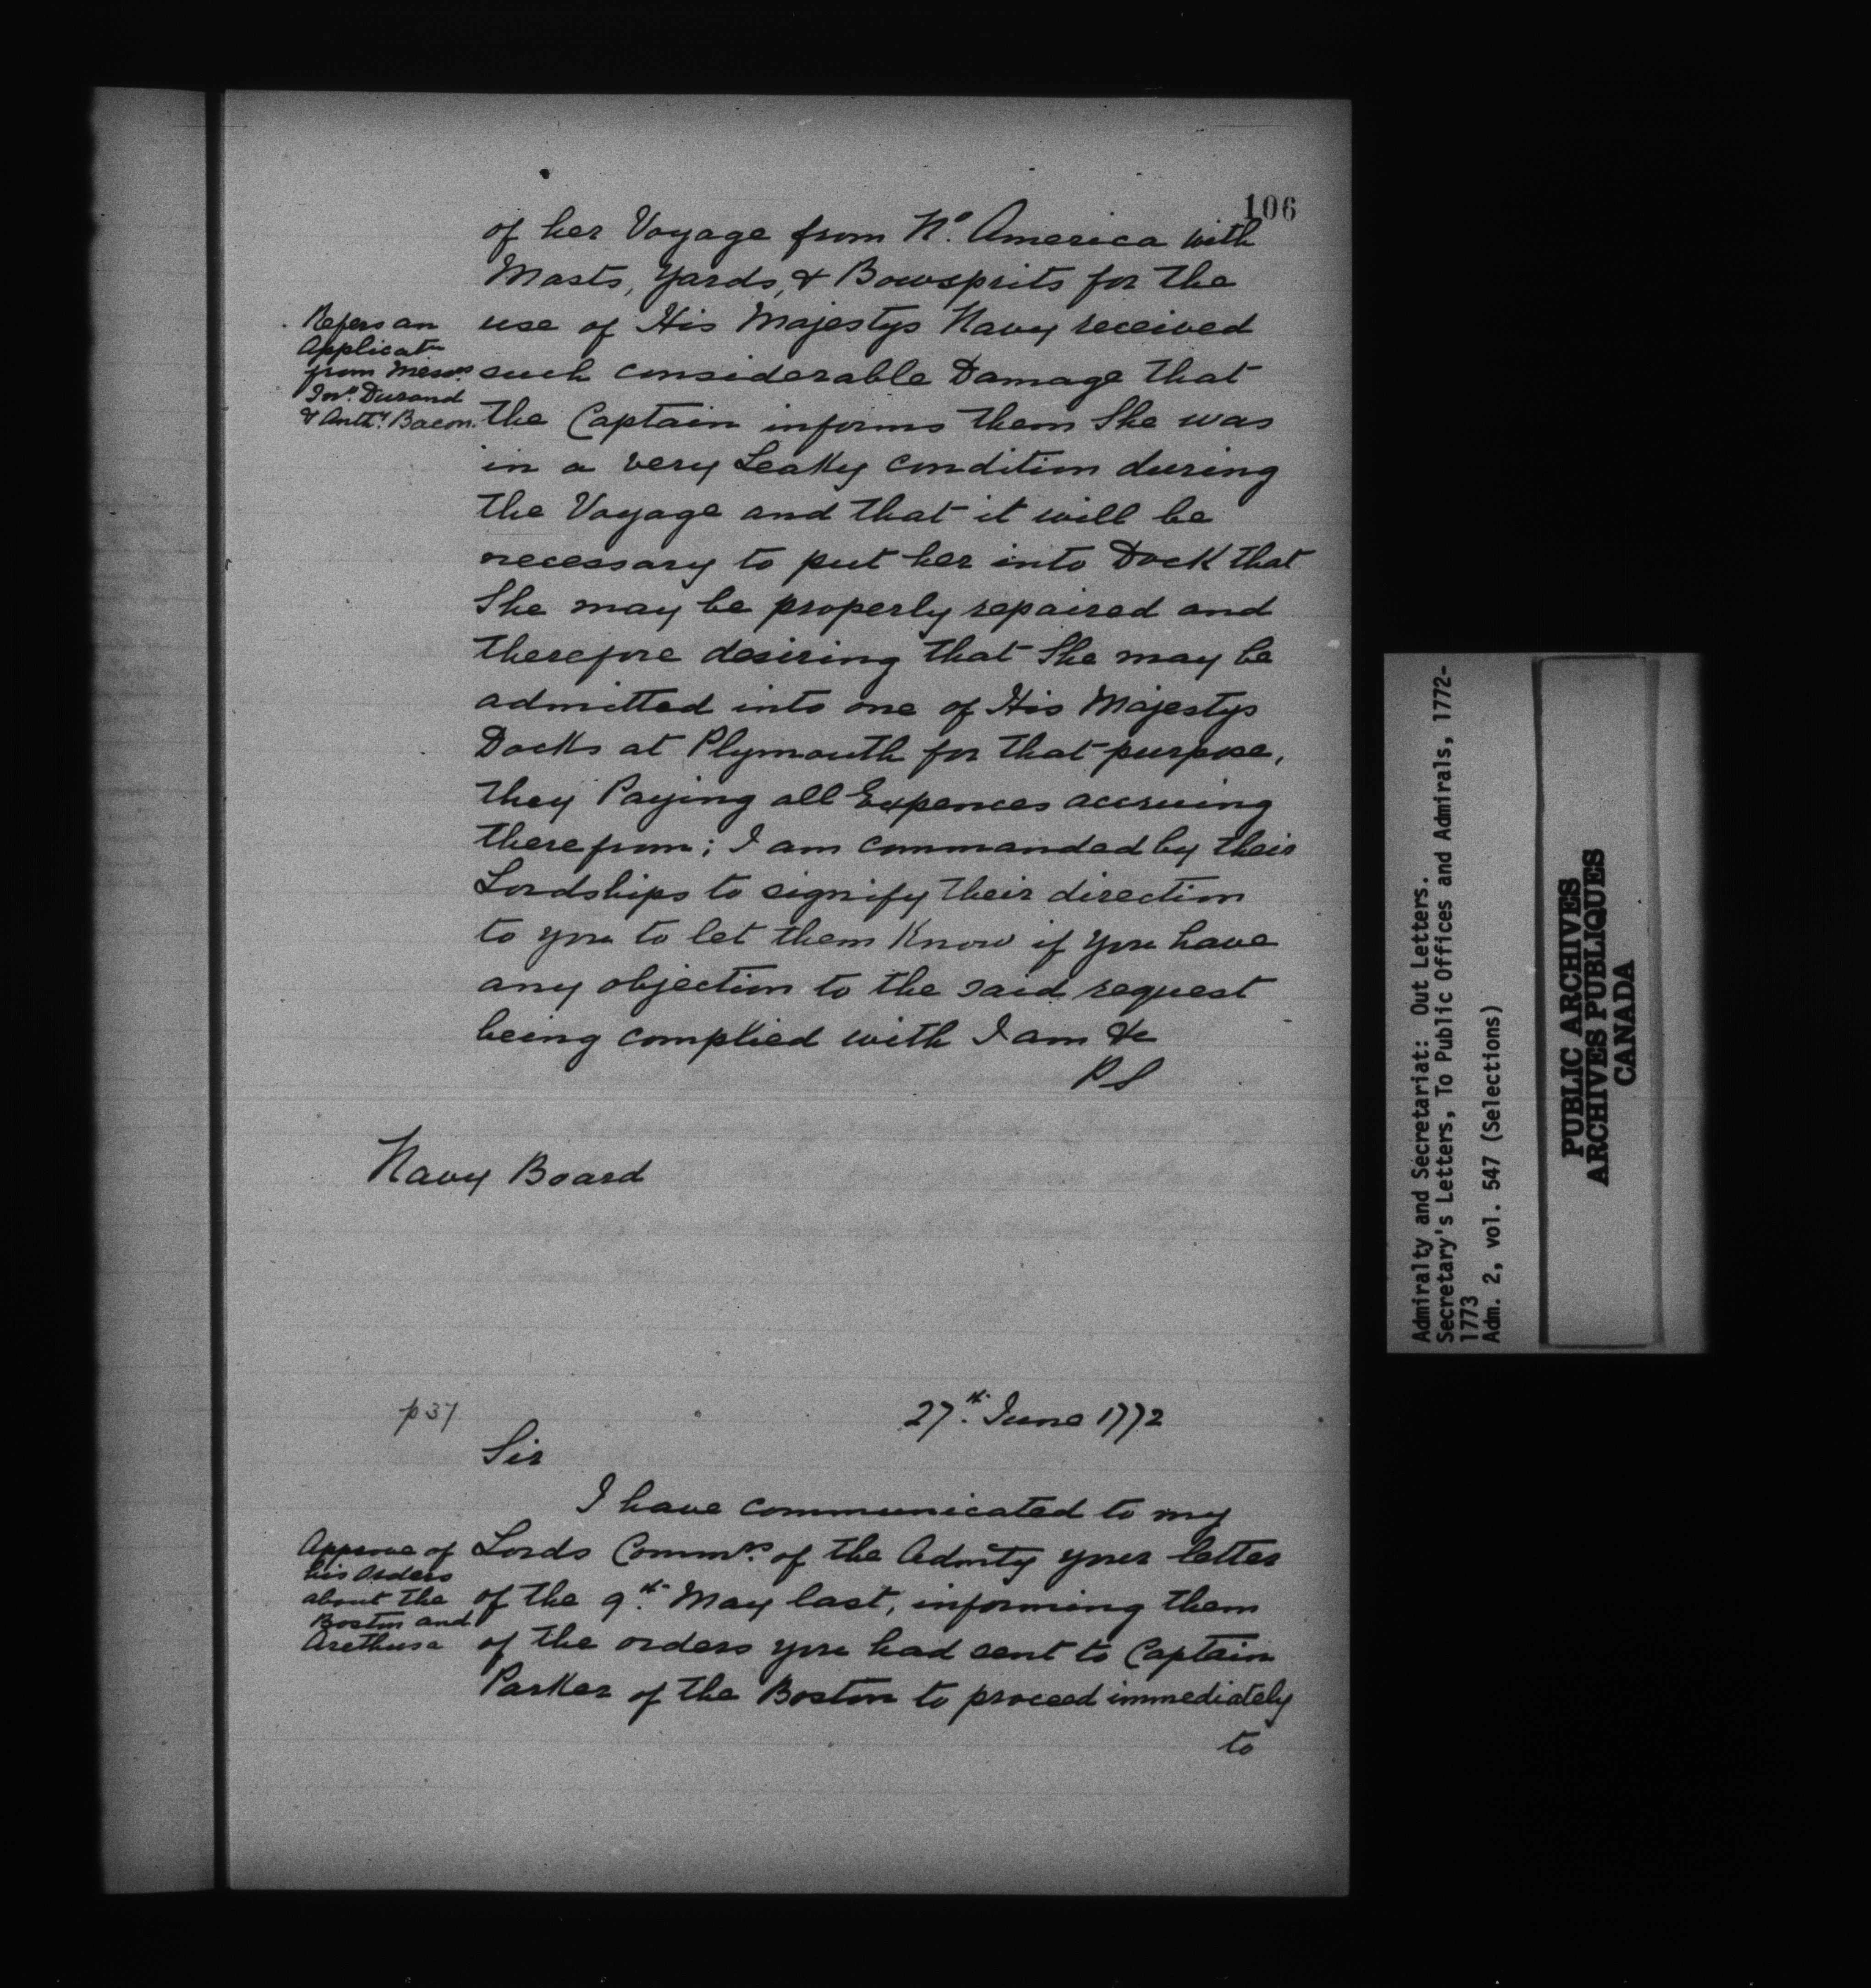 106
of her Voyage from No. America with
Masts, Yards, & Bowsprits for the
use of His Majestys Navy received
such considerable Damage that
the Captain informs them She was
in a very Leaky condition during
the Voyage and that it will be
necessary to put her into Dock that
She may be properly repaired and
therefore desiring that She may be
admitted into one of His Majestys
Docks at Plymouth for that purpose,
they Paying all Expences accruing
therefrom; I am commanded by their
Lordships to signify their direction
to you to let them Know if you have
any objection to the said request
being complied with I am &c
PS
Refers an
Applicatn
from Messrs.
Jno. Durand
& Anthy. Bacon.
Navy Board
p 37
27th. June 1772
Sir
I have communicated to my
Lords Commrs. of the Admty your letter
of the 9th. May last, informing them
of the orders you had sent to Captain
Parker of the Boston to proceed immediately
to
Approve of
his orders
about the
Boston and
Arethusa
Admiralty and Secretariat: Out Letters.
Secretary's Letters, To Public Offices and Admirals, 1772-
1773
Adm. 2, vol. 547 (Selections)
PUBLIC ARCHIVES
ARCHIVES PUBLIQUES
CANADA